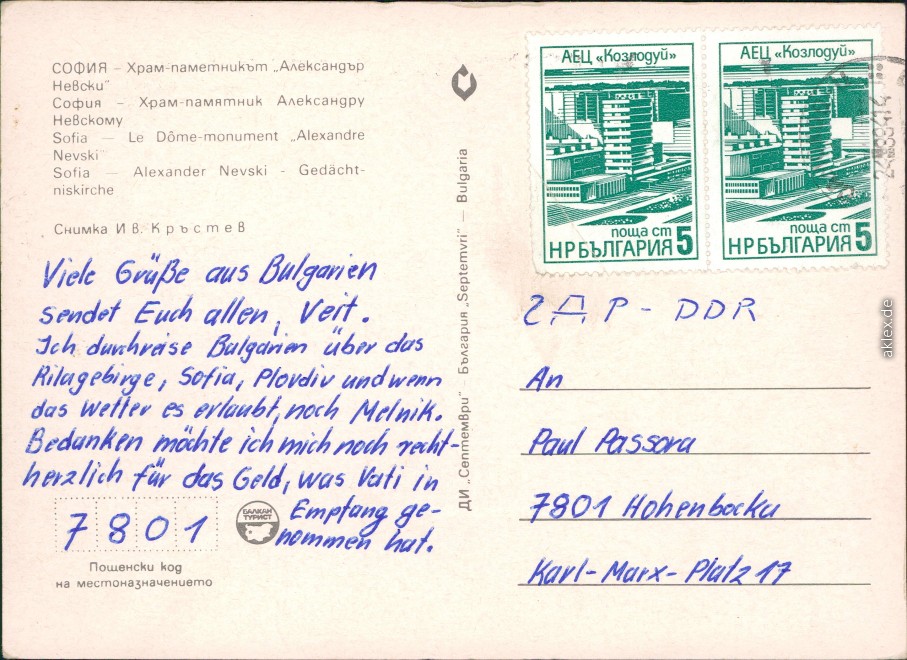 СОФИЯ – Храм-паметникът „Александър
Невски"
София – Храм-памятник Александру
Невскому
Sofia – Le Dôme-monument „Alexandre
Nevski"
Sofia – Alexander Nevski - Gedächt-
niskirche
Снимка Ив. Кръстев
Viele Grüße aus Bulgarien
sendet Euch allen, Veit.
Ich durchreise Bulgarien über das
Rilagebirge, Sofia, Plovdiv und wenn
das Wetter es erlaubt, noch Melnik.
Bedanken möchte ich mich noch recht-
herzlich für das Geld, was Vati in
Empfang ge-
nommen hat.
7801
БАЛКАН
ТУРИСТ
Пощенски код
на местоназначението
ДИ „Септември" – България „Septemvri" – Bulgaria
АЕЦ «Козлодуй»
поща ст
НРБЪЛГАРИЯ 5
АЕЦ «Козлодуй»
поща ст
НРБЪЛГАРИЯ 5
ГДР - DDR
An
Paul Passora
7801 Hohenbocka
Karl-Marx-Platz 17
aklex.de